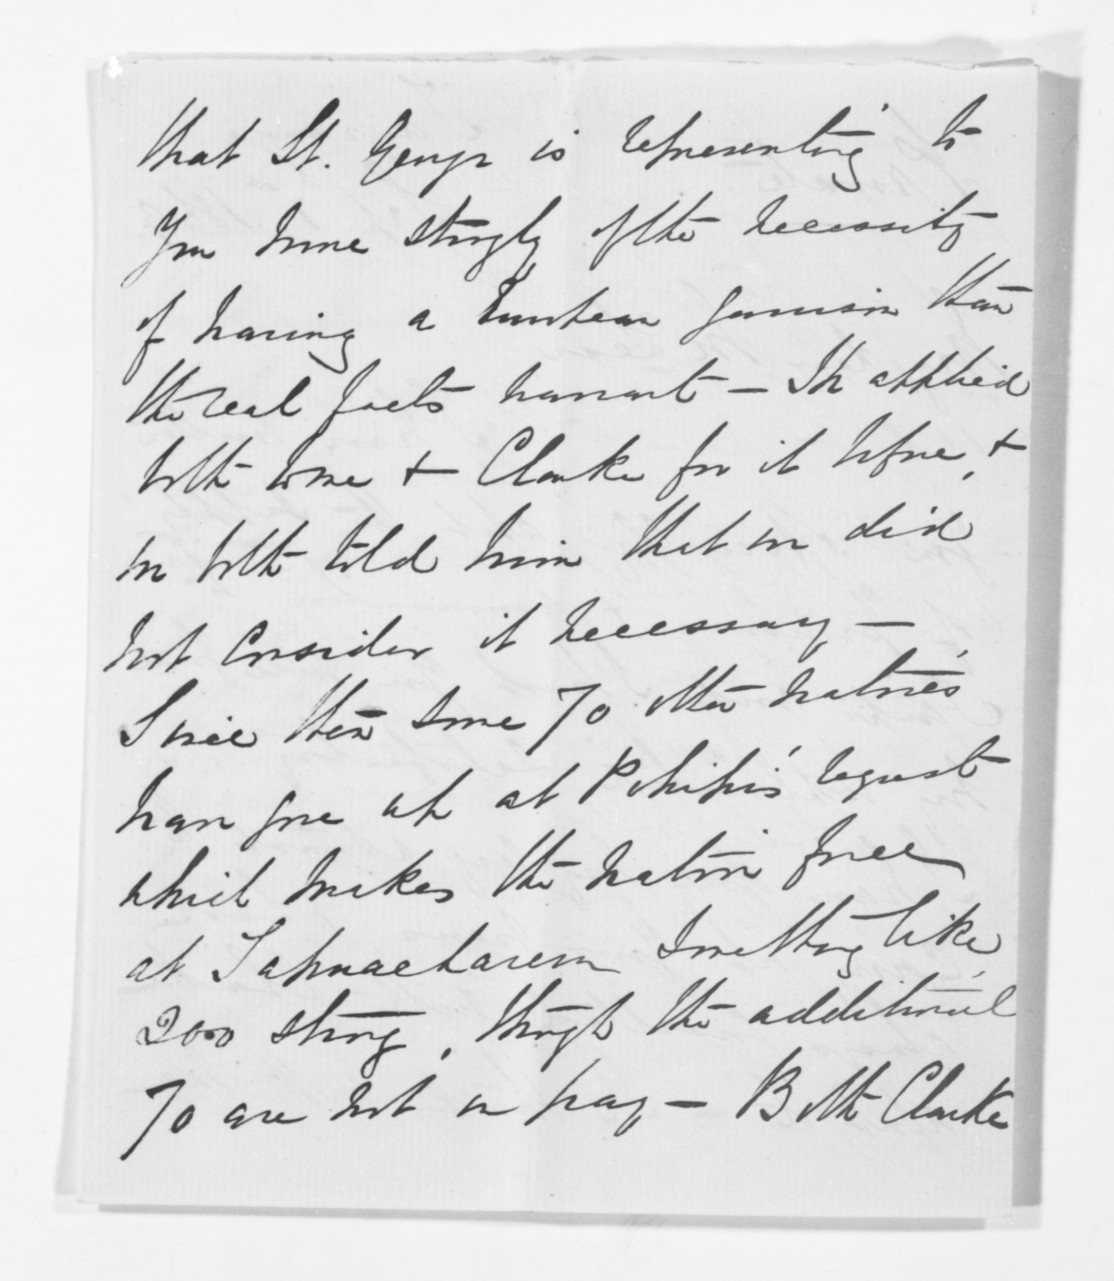 that St. George is representing to
you more strongly of the necessity
of having a European garrison than
the real facts warrant – He applied
both to me + Clarke for it before, +
we both told him that we did
not consider it necessary –
Since then some 70 other natives
have gone up at Pihipi's request
which makes the native force
at Tapuaeharuru something like
200 strong, though the additional
70 are not on pay – Both Clarke